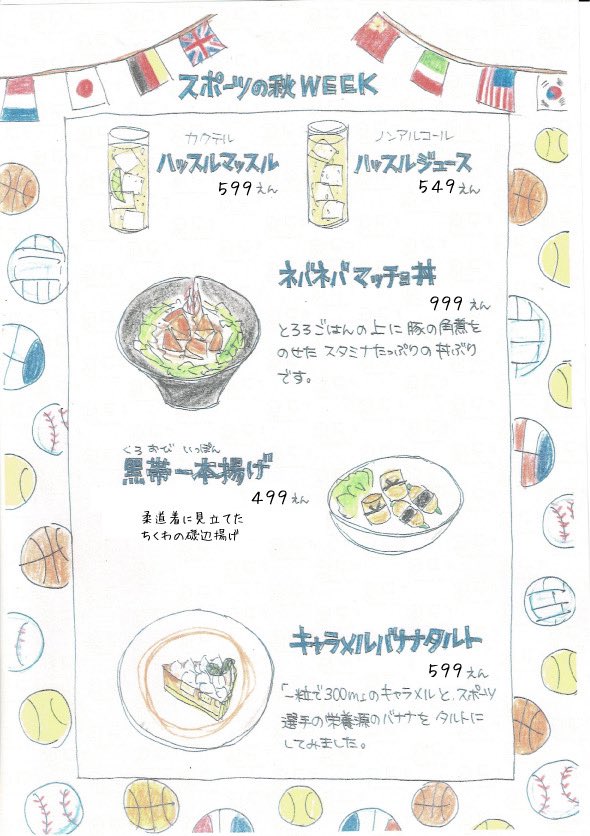 スポーツの秋WEEK
カクテル
ハッスルマッスル
599えん
ノンアルコール
ハッスルジュース
549えん
ネバネバマッチョ丼
999えん
とろろごはんの上に豚の角煮を
のせたスタミナたっぷりの丼ぶり
です。
くろおび いっぽん
黒帯一本揚げ
499えん
柔道着に見立てた
ちくわの磯辺揚げ
キャラメルバナナタルト
599えん
「一粒で300m」のキャラメルと、スポーツ
選手の栄養源のバナナをタルトに
してみました。